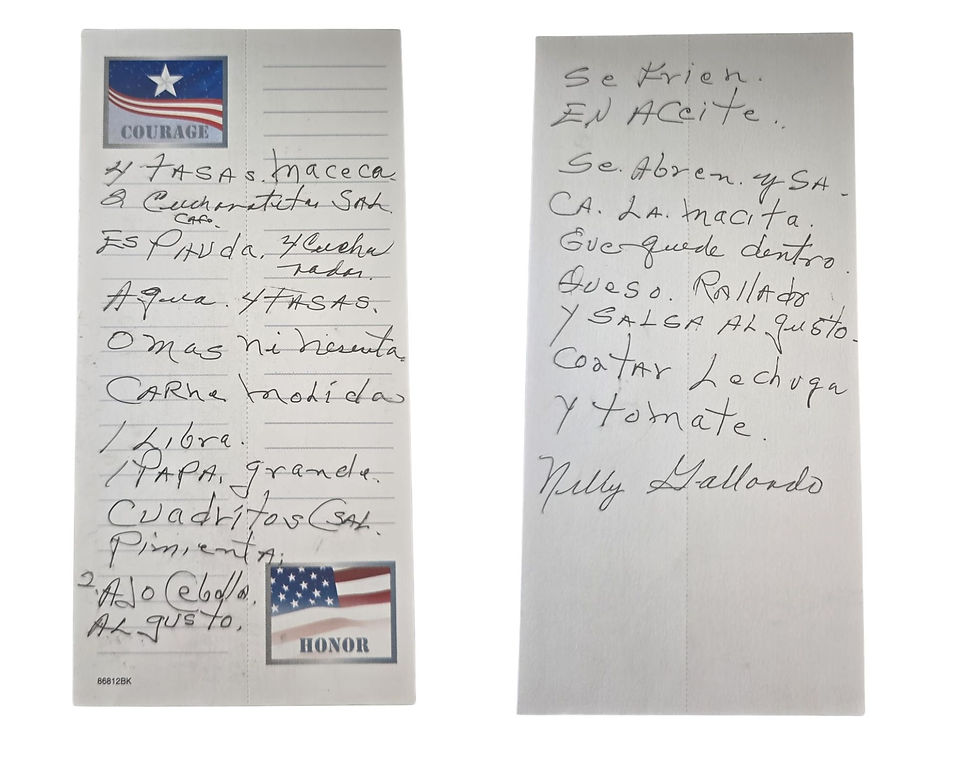 COURAGE
4 TASAS. Maceca.
2 Cucharatitas SAL.
Cafe.
ES PAUda. 4 Cucha
radas.
Agua. 4 TASAS.
O mas Ni Nesesita
CARNe MOLida
1 Libra.
1 PAPA, grande.
Cuadritos (SAL.
Pimienta,
2. AJO Cebolla,
AL gusto.
HONOR
86812BK
Se Frien.
EN ACeite..
Se. Abren. y SA-
CA. LA. Macita.
Gue-quede dentro.
Queso. Rallado
Y SALSA AL gusto.
Coatar Lechuga
Y tomate.
Nelly Gallardo